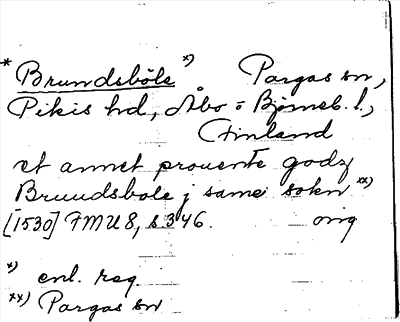 * Brundsböle *) Pargas sn,
Pikis hd, Åbo = Björneb. l.,
Finland
et annet prouente godz
Bruudsbole j same sokn **)
[1530] FMU 8, s 346. orig
*) enl. reg.
**) Pargas sn